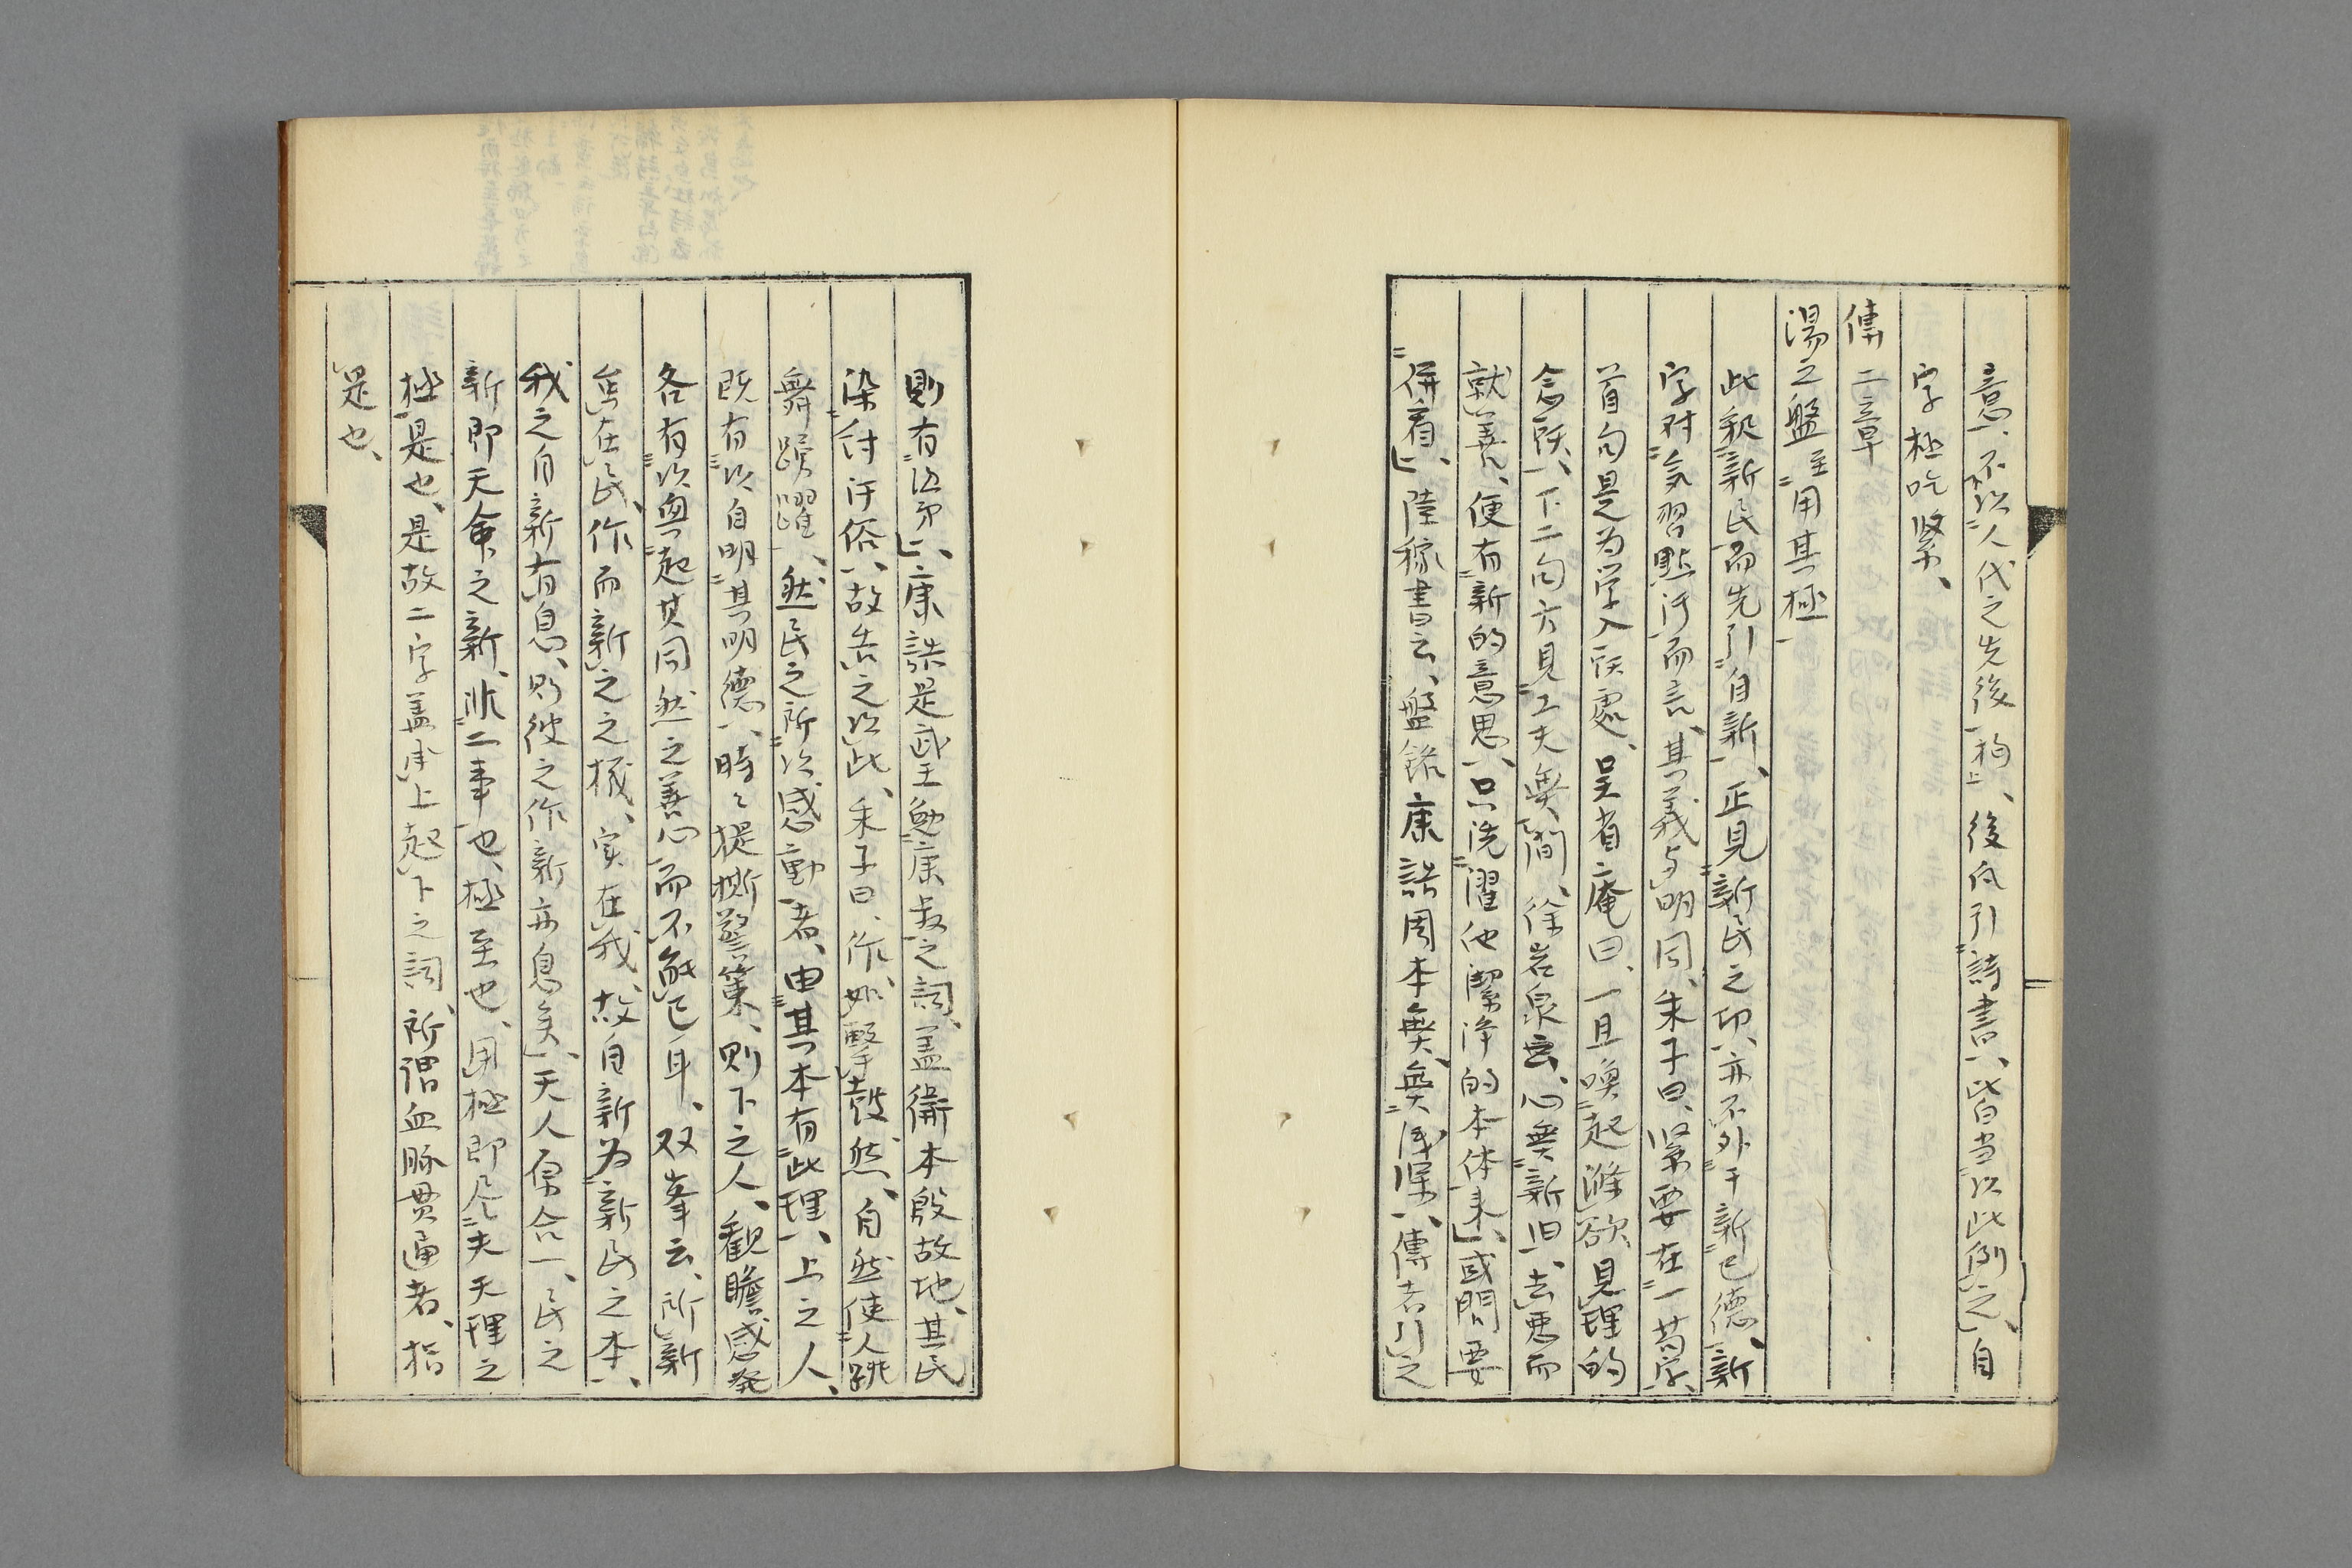 意、不以人代之先後拘上、後凡引詩書、皆当以此例之、自
字極吃緊、
傳二章
湯之盤至用其極
此釈新民而先引自新、正見新民之功、亦不外于新己德、新
字対気習點汙而言、其義与明同、朱子曰、緊要在一苟字、
首句是為学入頭處、呈省庵曰、一旦喚起滌欲見理的
念頭、下二句方見工夫無間、徐岩泉云、心無新旧、去悪而
就善、便有新的意思、只洗濯他潔浄的本体来、或問要
併看、陸稼書云、盤銘康誥周本無、無浅深、傳者引之
則有次第、康誥是武王勉康叔之詞、盖衞本殷故地、其民
染紂汙俗、故告之以此、朱子曰、作、如擊鼓然、自然使人跳
舞踴躍、然民之所以感動者、由其本有此理、上之人、
既有以自明其明德、時々提撕警策、則下之人、觀瞻感発
各有以興起其同然之善心而不能已耳、双峯云、所新
雖在民、作而新之之機、実在我、故自新為新民之本、
我之自新有息、則彼之作新亦息矣、天人原合一、民之
新即天命之新、非二事也、極至也、用極即尽夫天理之
極是也、是故二字盖承上起下之詞、所謂血脈貫通者、指
是也、